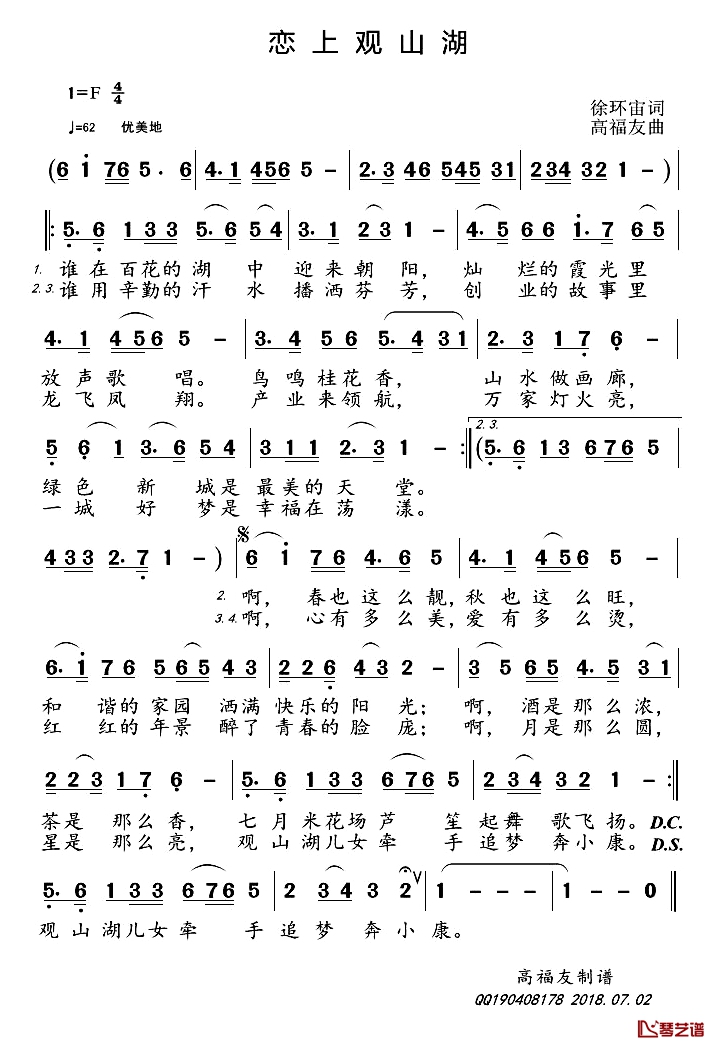 恋上观山湖
1=F 4/4
徐环宙词
♩=62 优美地
高福友曲
(6 1 76 5. 6 | 4.1 456 5 - | 2.3 46 545 31 | 234 32 1 - )
‖: 5. 6 1 3 3 5. 6 5 4 | 3. 1 2 3 1 - | 4. 5 6 6 1. 7 6 5
1. 谁在百花的湖中迎来朝阳，灿烂的霞光里
2.3. 谁用辛勤的汗水播洒芬芳，创业的故事里
4. 1 4 5 6 5 - | 3. 4 5 6 5. 4 3 1 | 2. 3 1 7 6 -
放声歌唱。鸟鸣桂花香，山水做画廊，
龙飞凤翔。产业来领航，万家灯火亮，
2.3.
5 6 1 3. 6 5 4 | 3 1 1 2. 3 1 - :‖ (5. 6 1 3 6 7 6 5
绿色新城是最美的天堂。
一城好梦是幸福在荡漾。
4 3 3 2. 7 1 - ) | 6 1 7 6 4. 6 5 | 4. 1 4 5 6 5
2. 啊，春也这么靓，秋也这么旺，
3.4. 啊，心有多么美，爱有多么烫，
6. 1 7 6 5 6 5 4 3 | 2 2 6 4 3 2 - | 3 5 6 5 4. 5 3 1
和谐的家园洒满快乐的阳光；啊，酒是那么浓，
红红的年景醉了青春的脸庞；啊，月是那么圆，
2 2 3 1 7 6 - | 5. 6 1 3 3 6 7 6 5 | 2 2 3 4 3 2 1 - :‖
茶是那么香，七月米花场芦笙起舞歌飞扬。D.C.
星是那么亮，观山湖儿女牵手追梦奔小康。D.S.
5. 6 1 3 3 6 7 6 5 | 2 3 4 3 2 | 1 - - - | 1 - - 0 ‖
观山湖儿女牵手追梦奔小康。
高福友制谱
QQ190408178 2018.07.02
琴艺谱